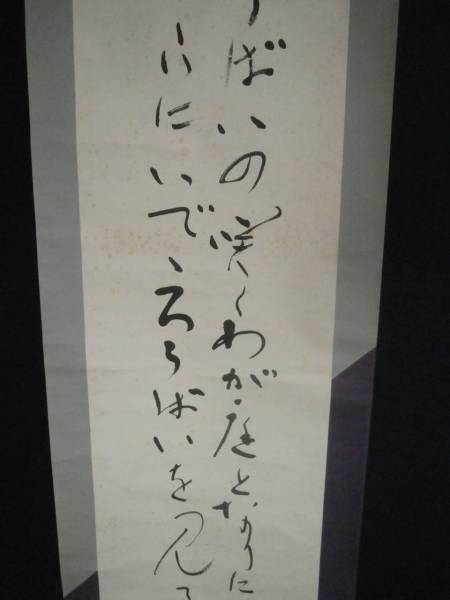 うばいの咲くわが庭となりに
いにいでゝろうばいを見